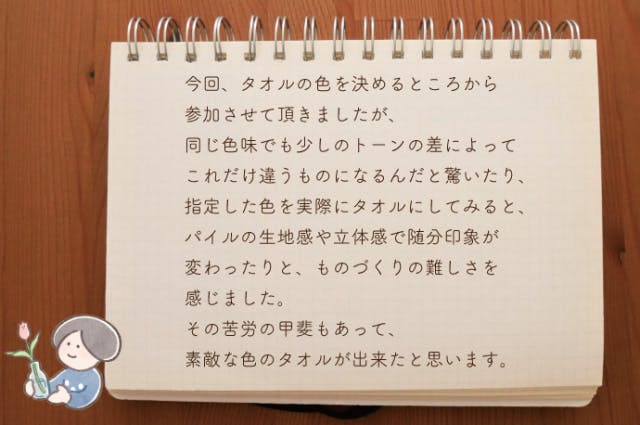 今回、タオルの色を決めるところから
参加させて頂きましたが、
同じ色味でも少しのトーンの差によって
これだけ違うものになるんだと驚いたり、
指定した色を実際にタオルにしてみると、
パイルの生地感や立体感で随分印象が
変わったりと、ものづくりの難しさを
感じました。
その苦労の甲斐もあって、
素敵な色のタオルが出来たと思います。